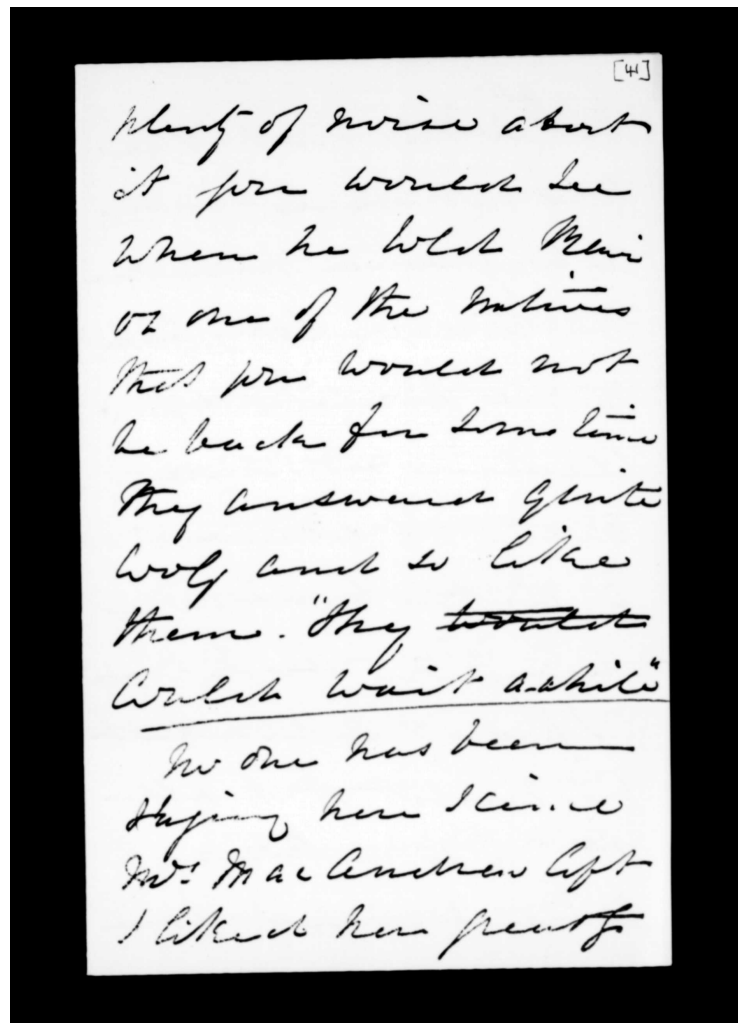 [41]
plenty of noise about
it you would see
when he told Mair
or one of the natives
that you would not
be back for some time
they answered quite
cooly and so like
them. "they would
could wait a-while"
No one has been
staying here since
Mrs MacAndrew left
I liked her greatly